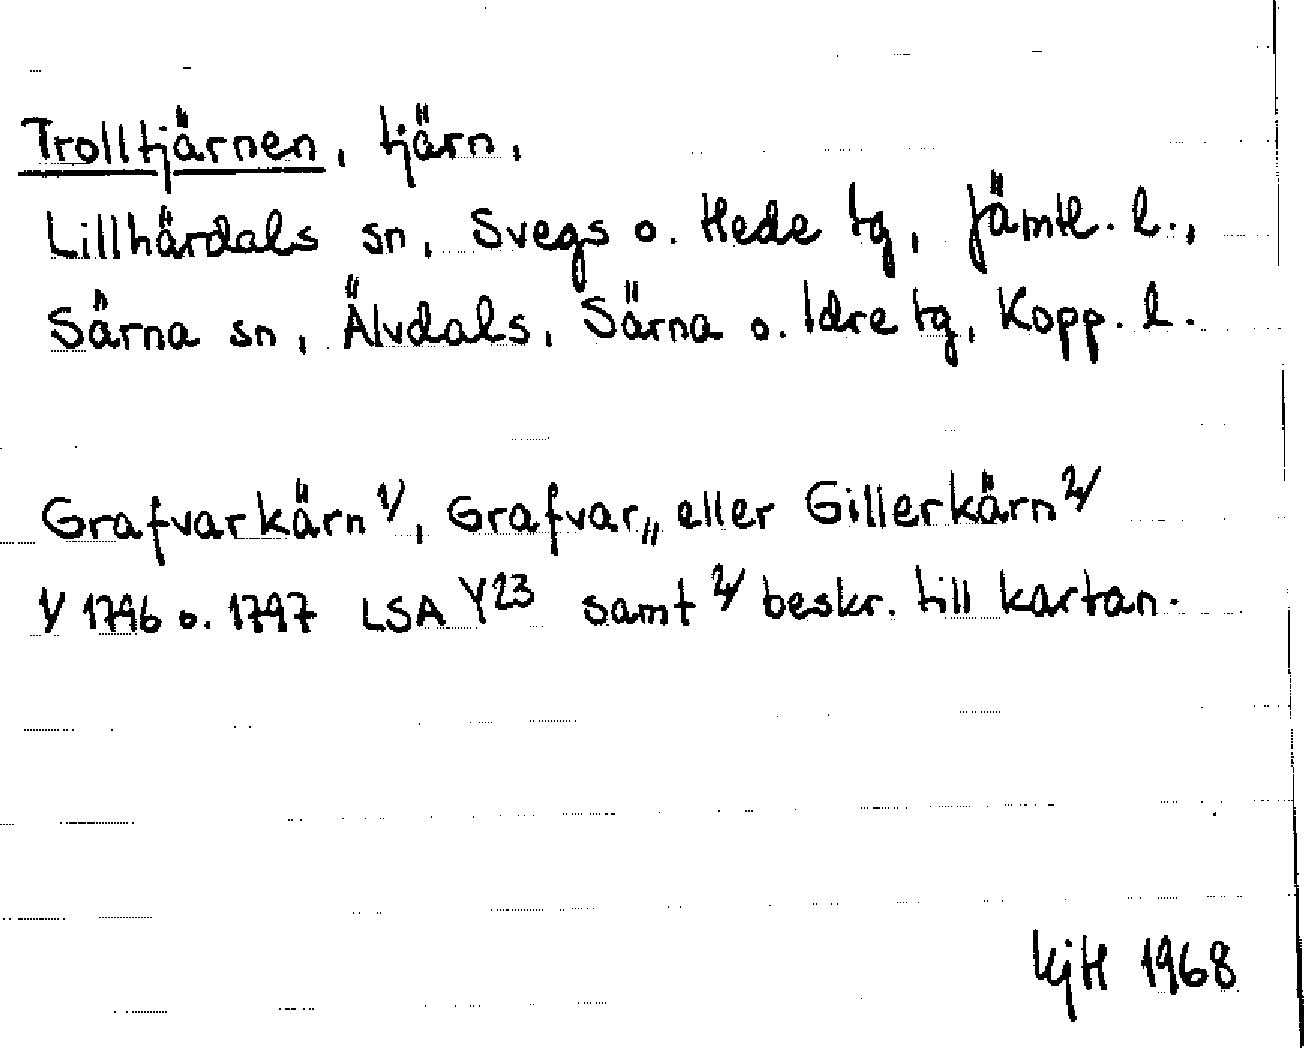 Trolltjärnen, tjärn,
Lillhärdals sn, Svegs o. Hede tg, Jämtl. l.,
Särna sn, Älvdals, Särna o. Idre tg, Kopp. l.
Grafvarkärn 1/, Grafvar„ eller Gillerkärn 2/
1/ 1796 o. 1797 LSA Y23 samt 2/ beskr. till kartan.
KjH 1968